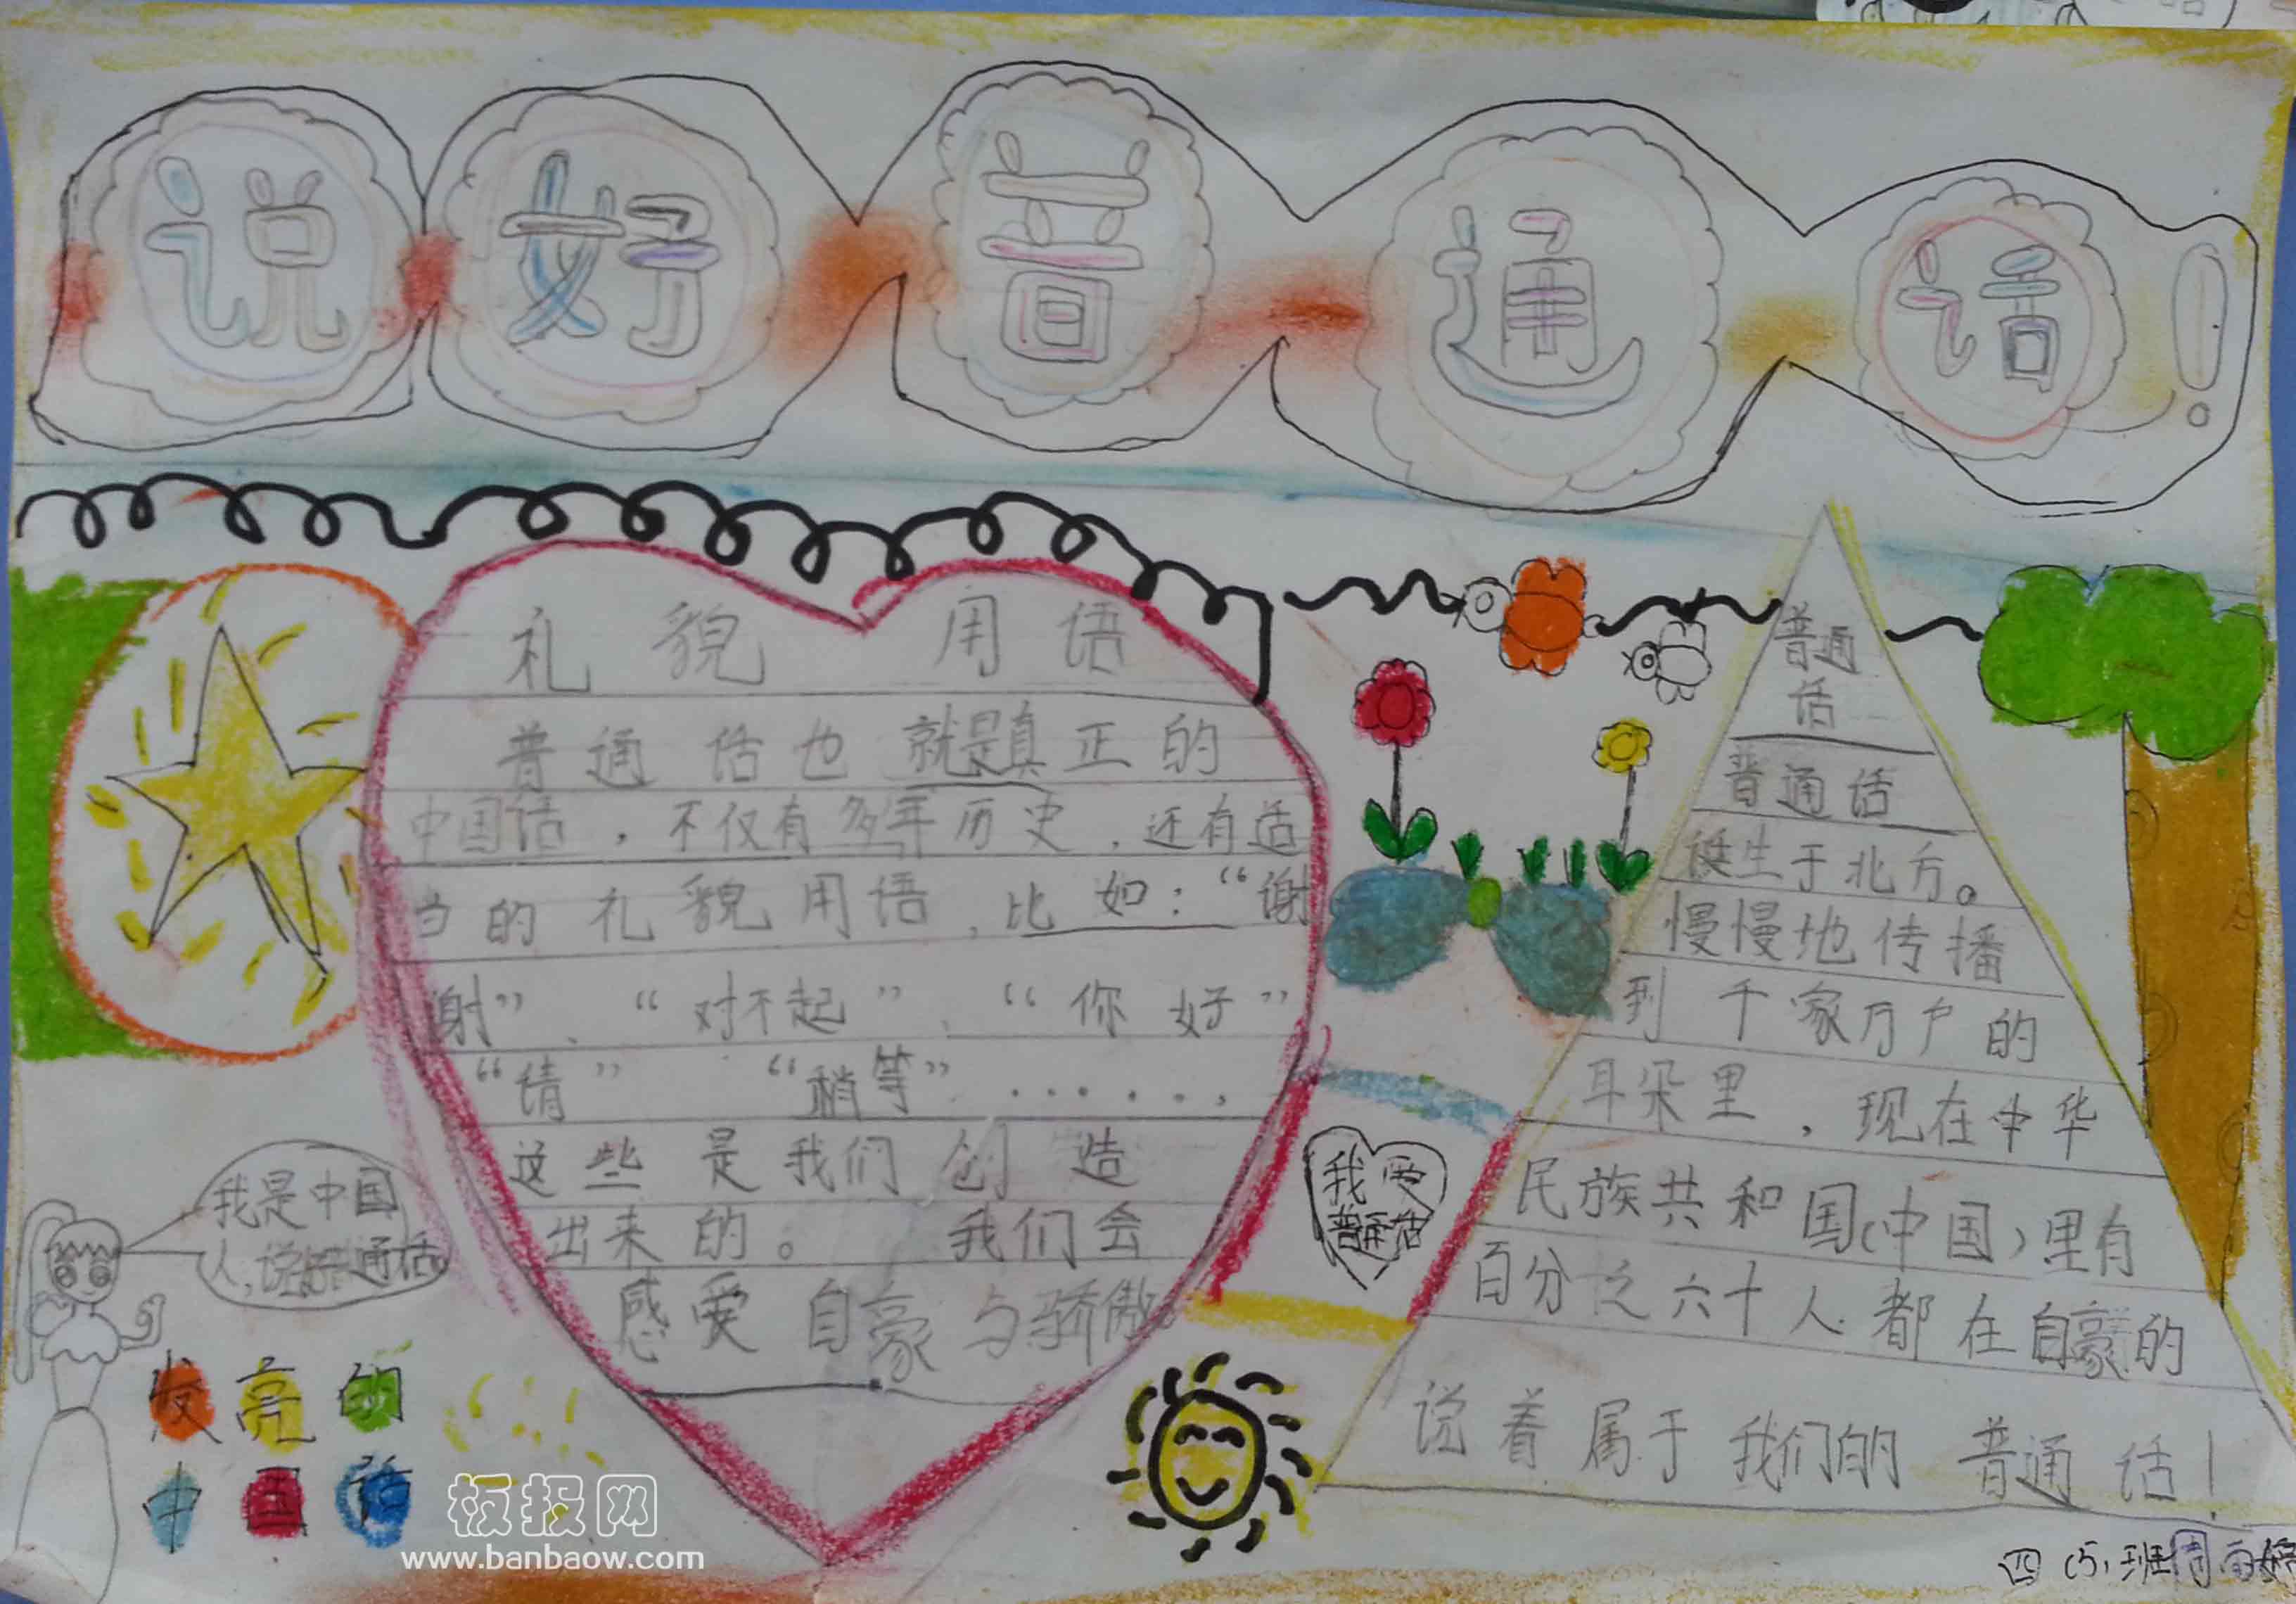 说好普通话！
礼貌用语
普通话也就是真正的
中国话，不仅有多年历史，还有适
当的礼貌用语，比如：“谢
谢”、“对不起”、“你好”
“请”“稍等”......，
这些是我们创造
出来的。我们会
感受自豪与骄傲
普通
话
普通话
诞生于北方。
慢慢地传播
到千家万户的
耳朵里，现在中华
民族共和国(中国)里有
百分之六十人都在自豪的
说着属于我们的普通话！
我爱
普通话
我是中国
人，说普通话
发亮的
中国话
板报网
www.banbaow.com
四(5)班周雨婷